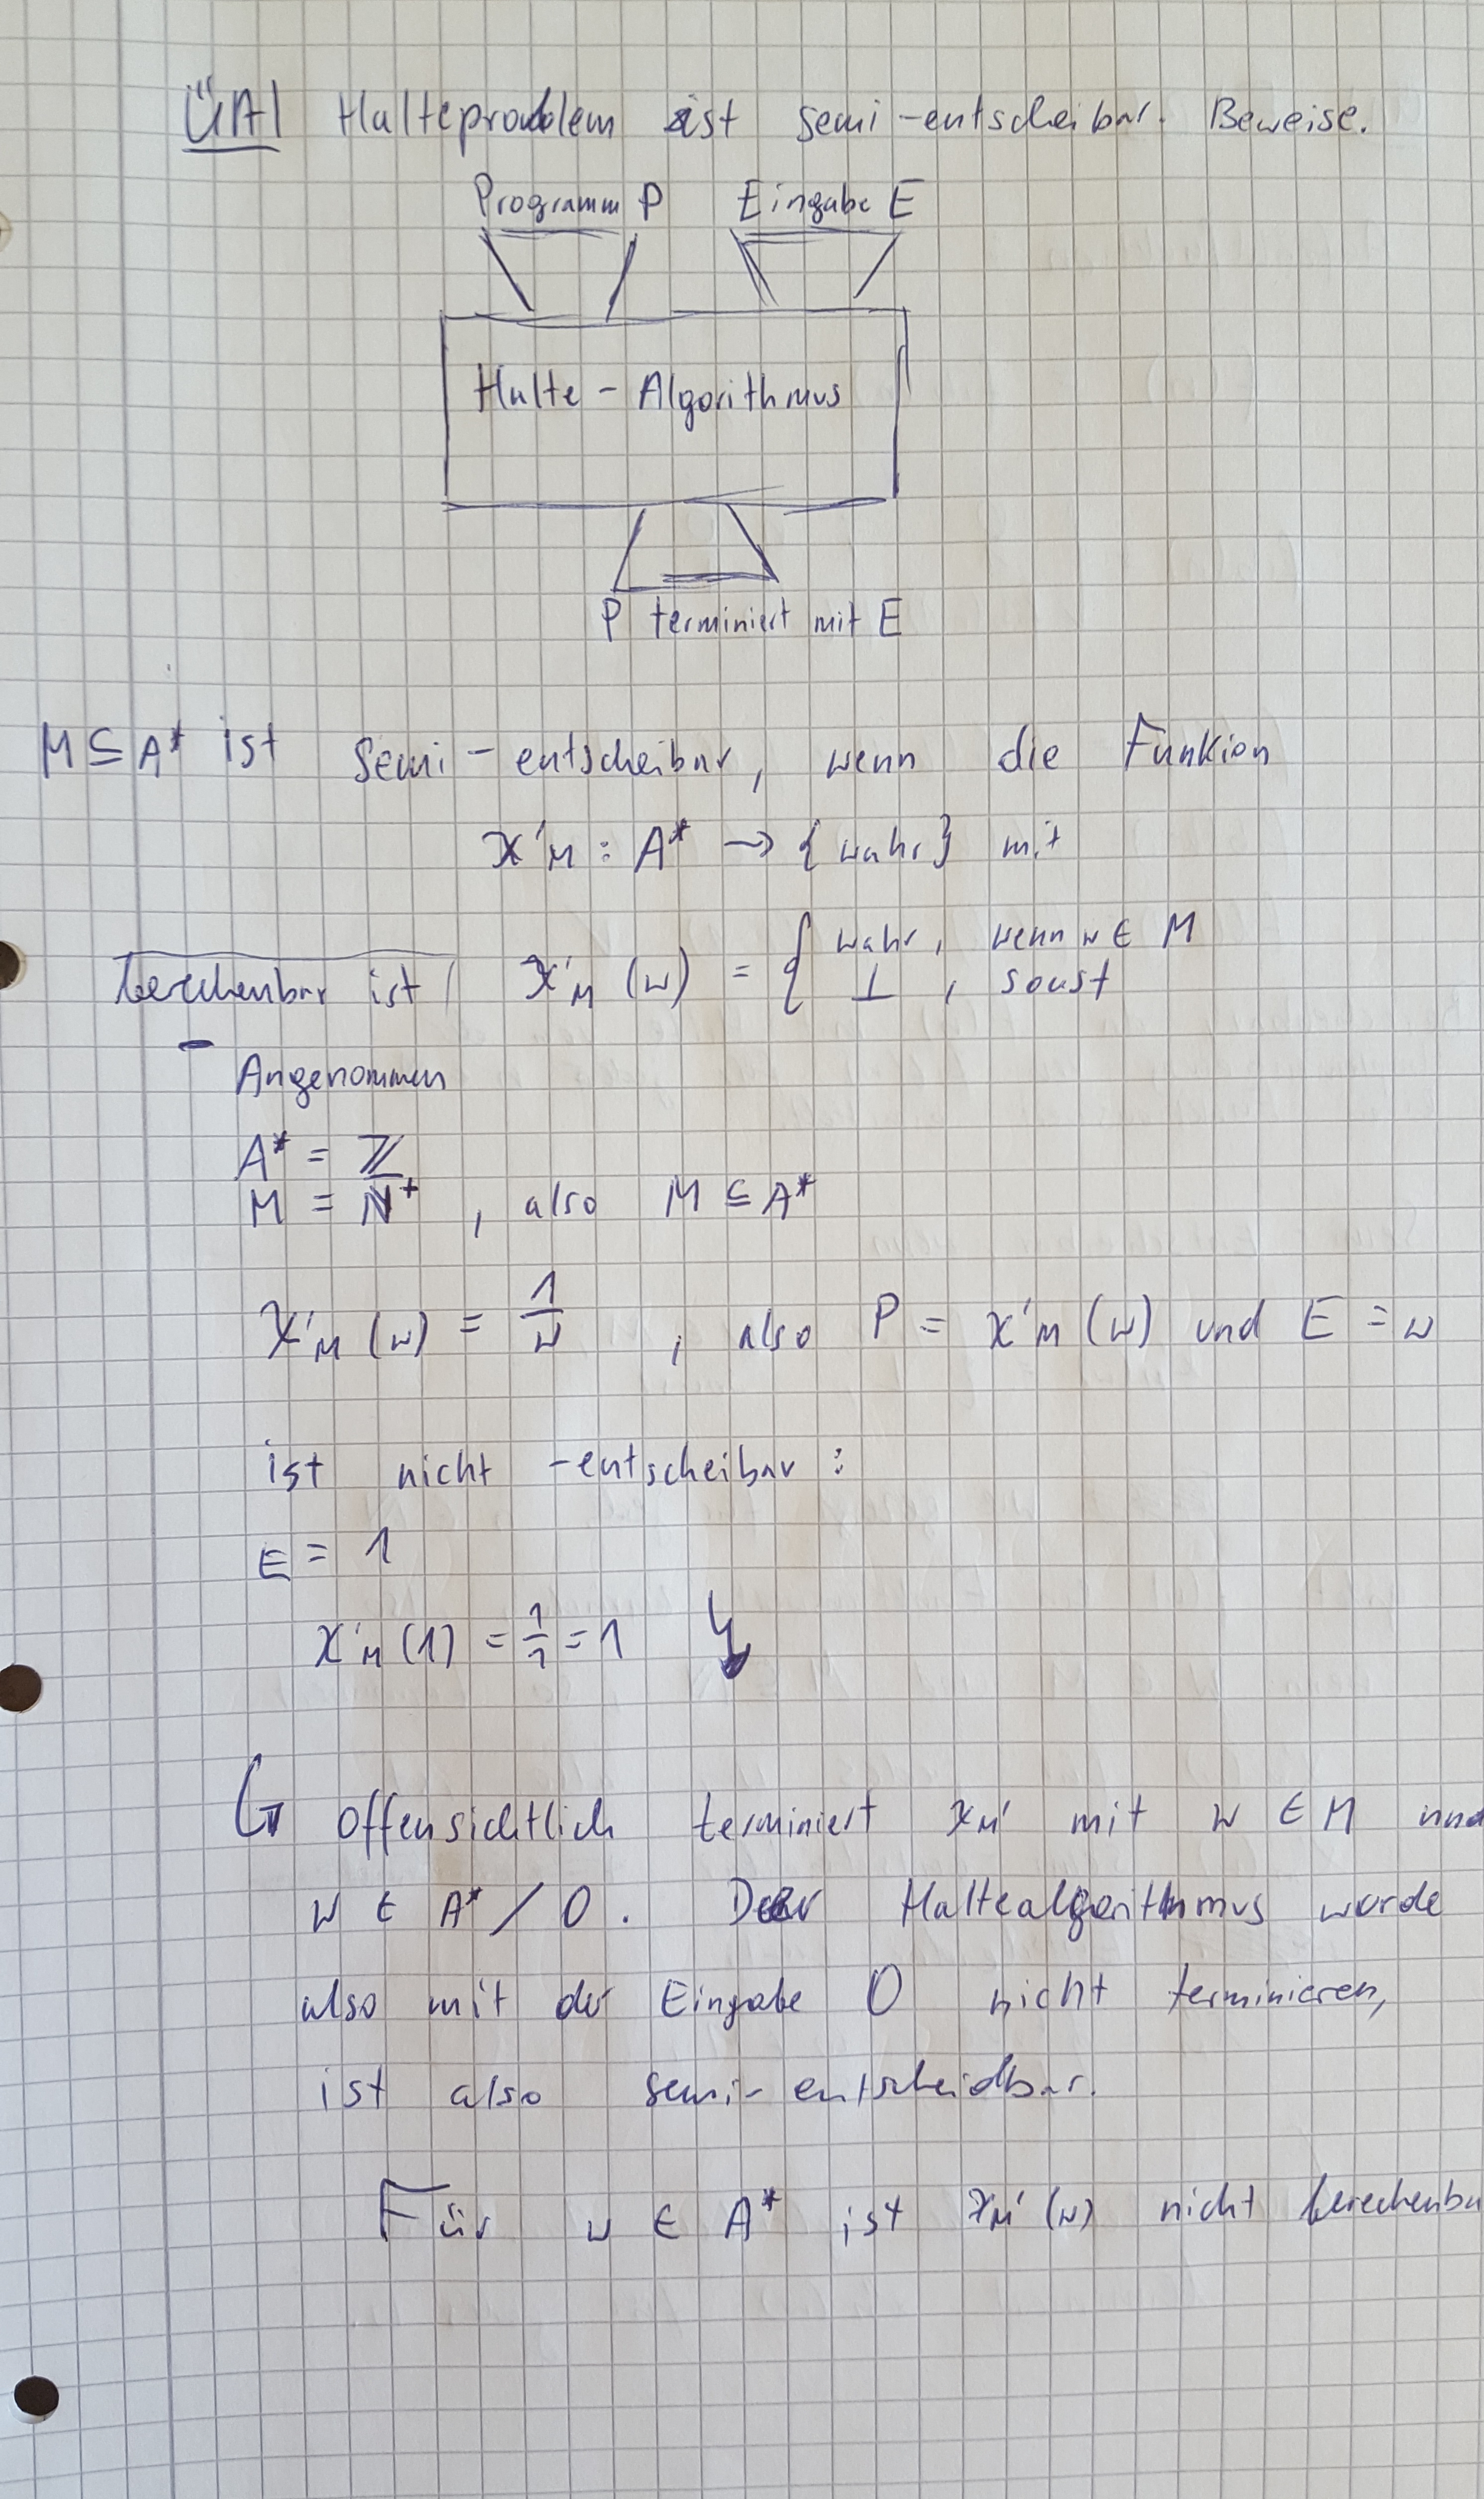 ÜA1 Halteproblem ist semi-entscheibar. Beweise.
Programm P Eingabe E
Halte - Algorithmus
P terminiert mit E
M ⊆ A* ist semi-entscheibar, wenn die Funkion
χ'M : A* → { wahr } mit
berechenbar ist χ'M (w) = { wahr, wenn w ∈ M
⊥, sonst
Angenommen
A* = ℤ
M = ℕ+, also M ⊆ A*
χ'M (w) = 1/w, also P = χ'M (w) und E = w
ist nicht -entscheibar :
E = 1
χ'M (1) = 1/1 = 1 ↯
↳ offensichtlich terminiert χM' mit w ∈ M und
w ∈ A* / 0. Der Haltealgorithmus würde
also mit der Eingabe 0 nicht terminieren,
ist also semi-entscheidbar.
Für w ∈ A* ist χM' (w) nicht berechenba